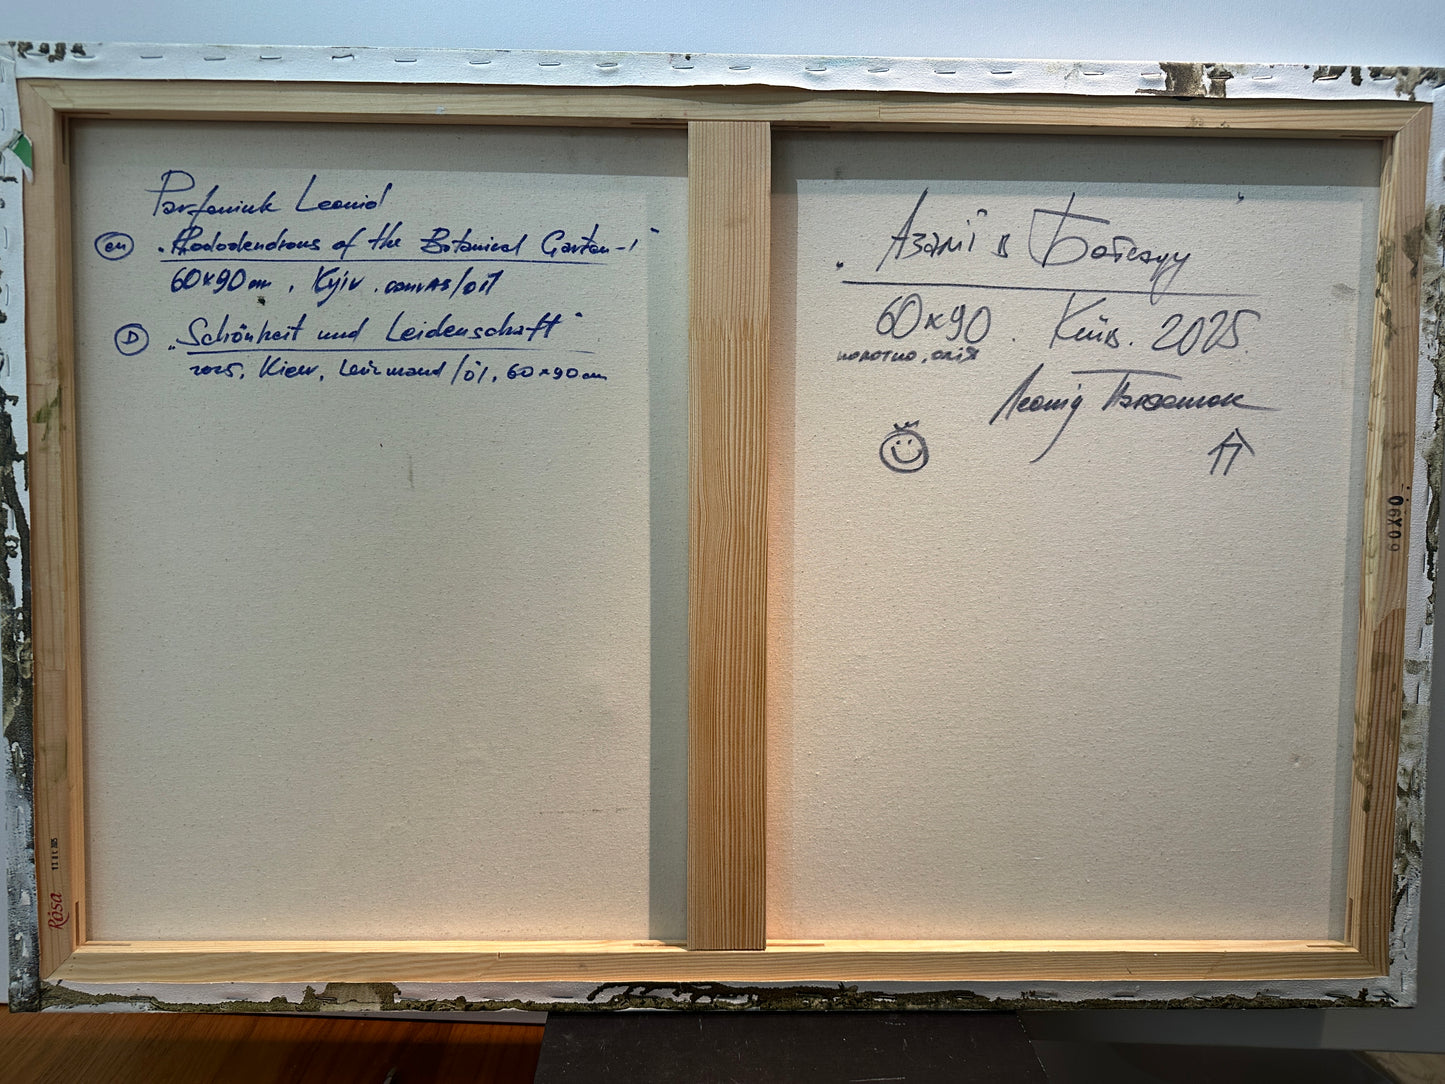 Parfeniuk Leonid
en „Rhododendrons of the Botanical Garten-1"
60x90 cm, Kyiv. canvas/oil
D „Schönheit und Leidenschaft"
2025, Kiew, Leinwand/öl, 60x90 cm
„Азалії в Ботсаду"
60x90. Київ. 2025.
полотно, олія
Леонід Парфенюк
60X90
Rosa